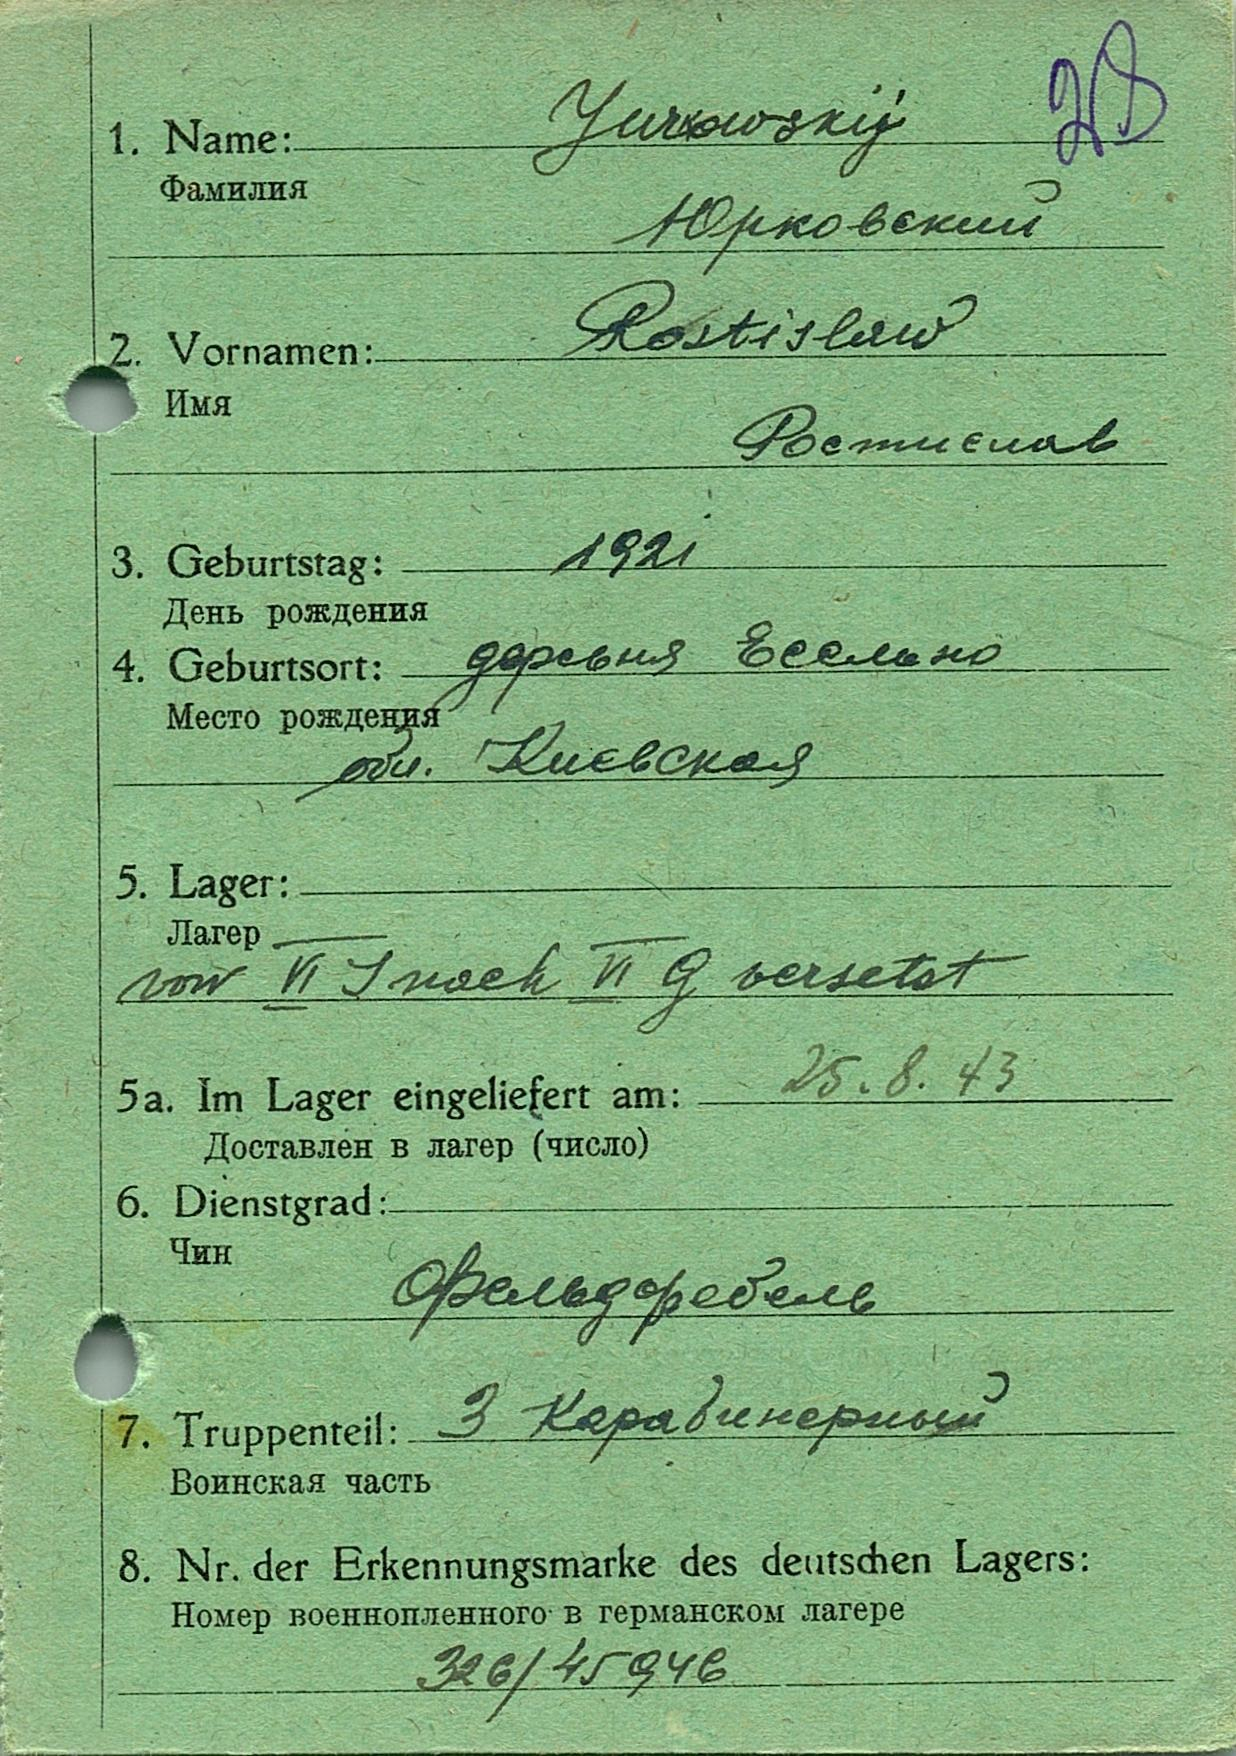 1. Name: Yurkowskij
Фамилия
Юрковский
2. Vornamen: Rostislaw
Имя
Ростислав
3. Geburtstag: 1921
День рождения
4. Geburtsort: деревня
Место рождения
обл. Киевская
5. Lager:
Лагер
von VI J nach VI G versetzt
5a. Im Lager eingeliefert am: 25.8.43
Доставлен в лагер (число)
6. Dienstgrad:
Чин
Фельдфебель
7. Truppenteil: 3 Карабинерный
Воинская часть
8. Nr. der Erkennungsmarke des deutschen Lagers:
Номер военнопленного в германском лагере
326/45946